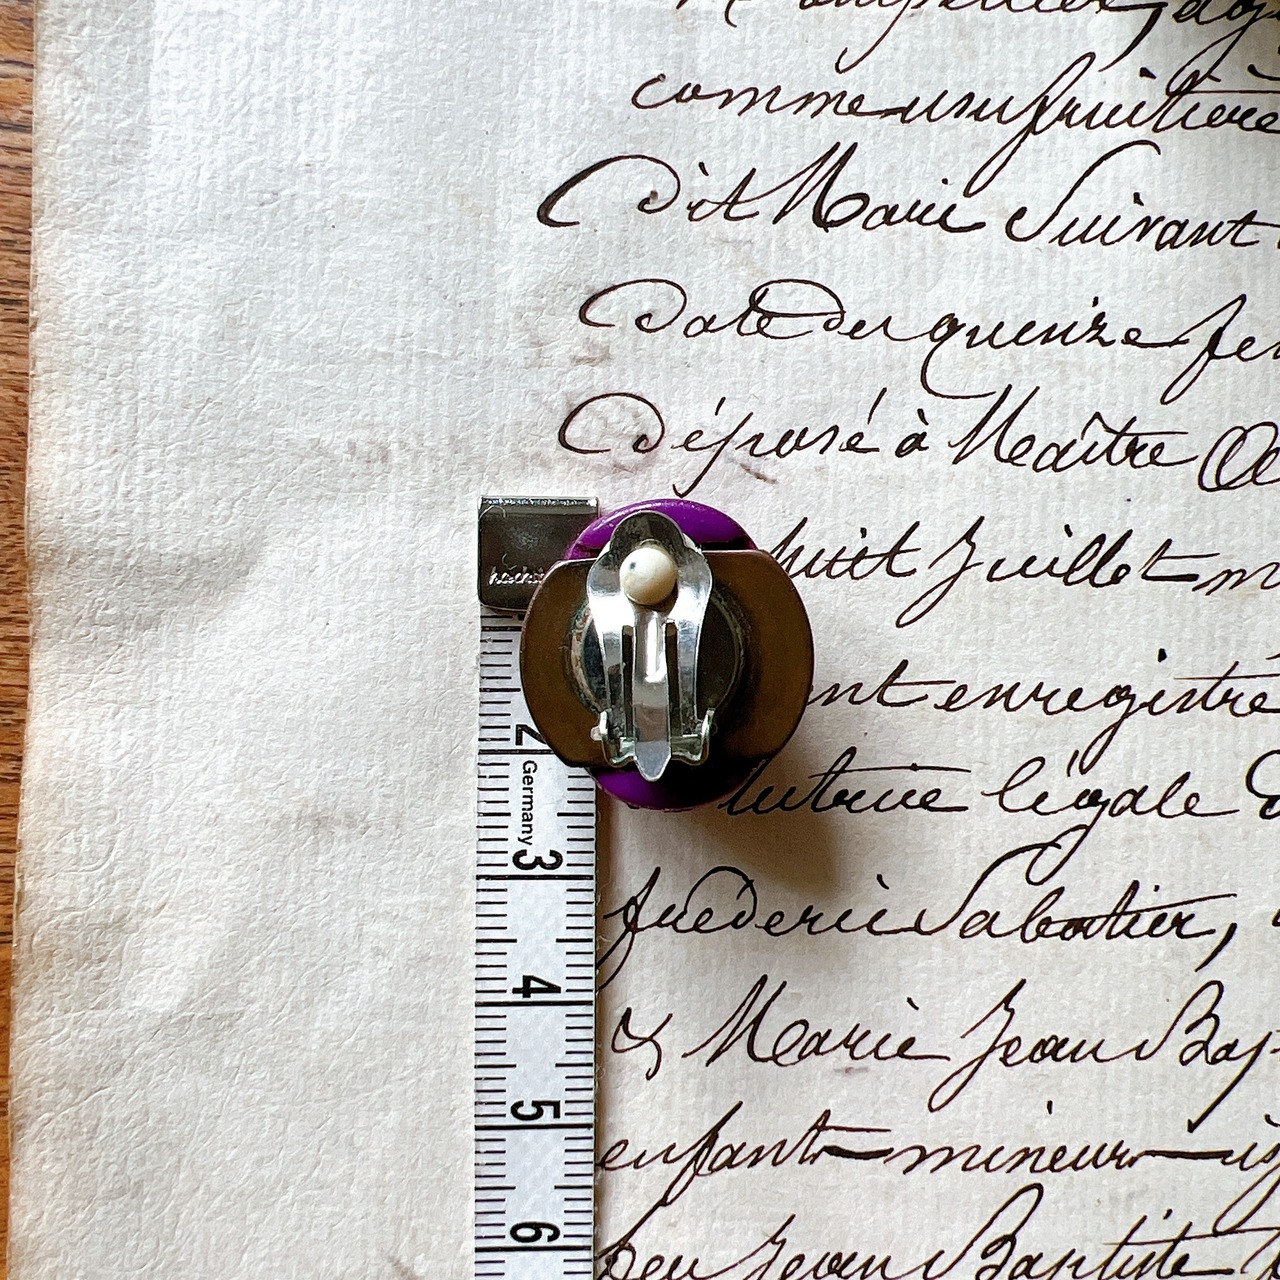 comme usufruitière
Dit Marie Suivant
Date du quinze fe
Déposé à Maître
huit Juillet m
nt enregistré
tutrice légale D
fréderic Sabatier,
& Marie Jean Bap
enfant mineur is
feu Jean Baptiste
hoechst
2
Germany
3
4
5
6